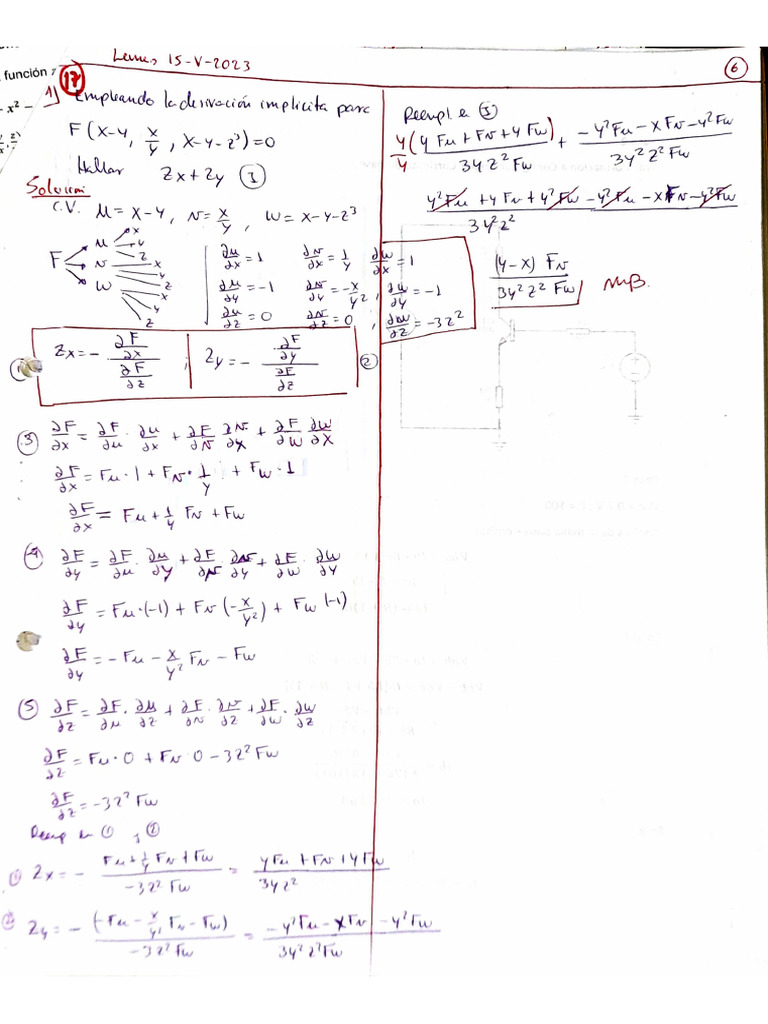 Lunes, 15-V-2023
6
función
17
- x² -
1) Empleando la derivación implicita para
F(x-y, x/y, x-y-z³)=0
Hallar Zx+Zy (3)
Solución
C.V. u = x-y, v = x/y, w = x-y-z³
F
u
v
w
x
y
z
x
y
z
x
y
z
∂u/∂x = 1 ∂v/∂x = 1/y ∂w/∂x = 1
∂u/∂y = -1 ∂v/∂y = -x/y², ∂w/∂y = -1
∂u/∂z = 0 ∂v/∂z = 0, ∂w/∂z = -3z²
(1) Zx = - (∂F/∂x)/(∂F/∂z) ; Zy = - (∂F/∂y)/(∂F/∂z) (2)
(3) ∂F/∂x = ∂F/∂u · ∂u/∂x + ∂F/∂v · ∂v/∂x + ∂F/∂w · ∂w/∂x
∂F/∂x = Fu·1 + Fv·1/y + Fw·1
∂F/∂x = Fu + 1/y Fv + Fw
(4) ∂F/∂y = ∂F/∂u · ∂u/∂y + ∂F/∂v · ∂v/∂y + ∂F/∂w · ∂w/∂y
∂F/∂y = Fu·(-1) + Fv(-x/y²) + Fw(-1)
∂F/∂y = -Fu - x/y² Fv - Fw
(5) ∂F/∂z = ∂F/∂u · ∂u/∂z + ∂F/∂v · ∂v/∂z + ∂F/∂w · ∂w/∂z
∂F/∂z = Fu·0 + Fv·0 - 3z² Fw
∂F/∂z = -3z² Fw
Reemp en (1) y (2)
(1) Zx = - (Fu + 1/y Fv + Fw)/(-3z² Fw) = (yFu + Fv + yFw)/(3yz²)
(2) Zy = - (-Fu - x/y² Fv - Fw)/(-3z² Fw) = (-y²Fu - xFv - y²Fw)/(3y²z²Fw)
Reempl en (3)
y/y (yFu + Fv + yFw)/(3yz²Fw) + (-y²Fu - xFv - y²Fw)/(3y²z²Fw)
(y²Fu + yFv + y²Fw - y²Fu - xFv - y²Fw)/(3y²z²)
(y-x) Fv/(3y²z² Fw) // MB.